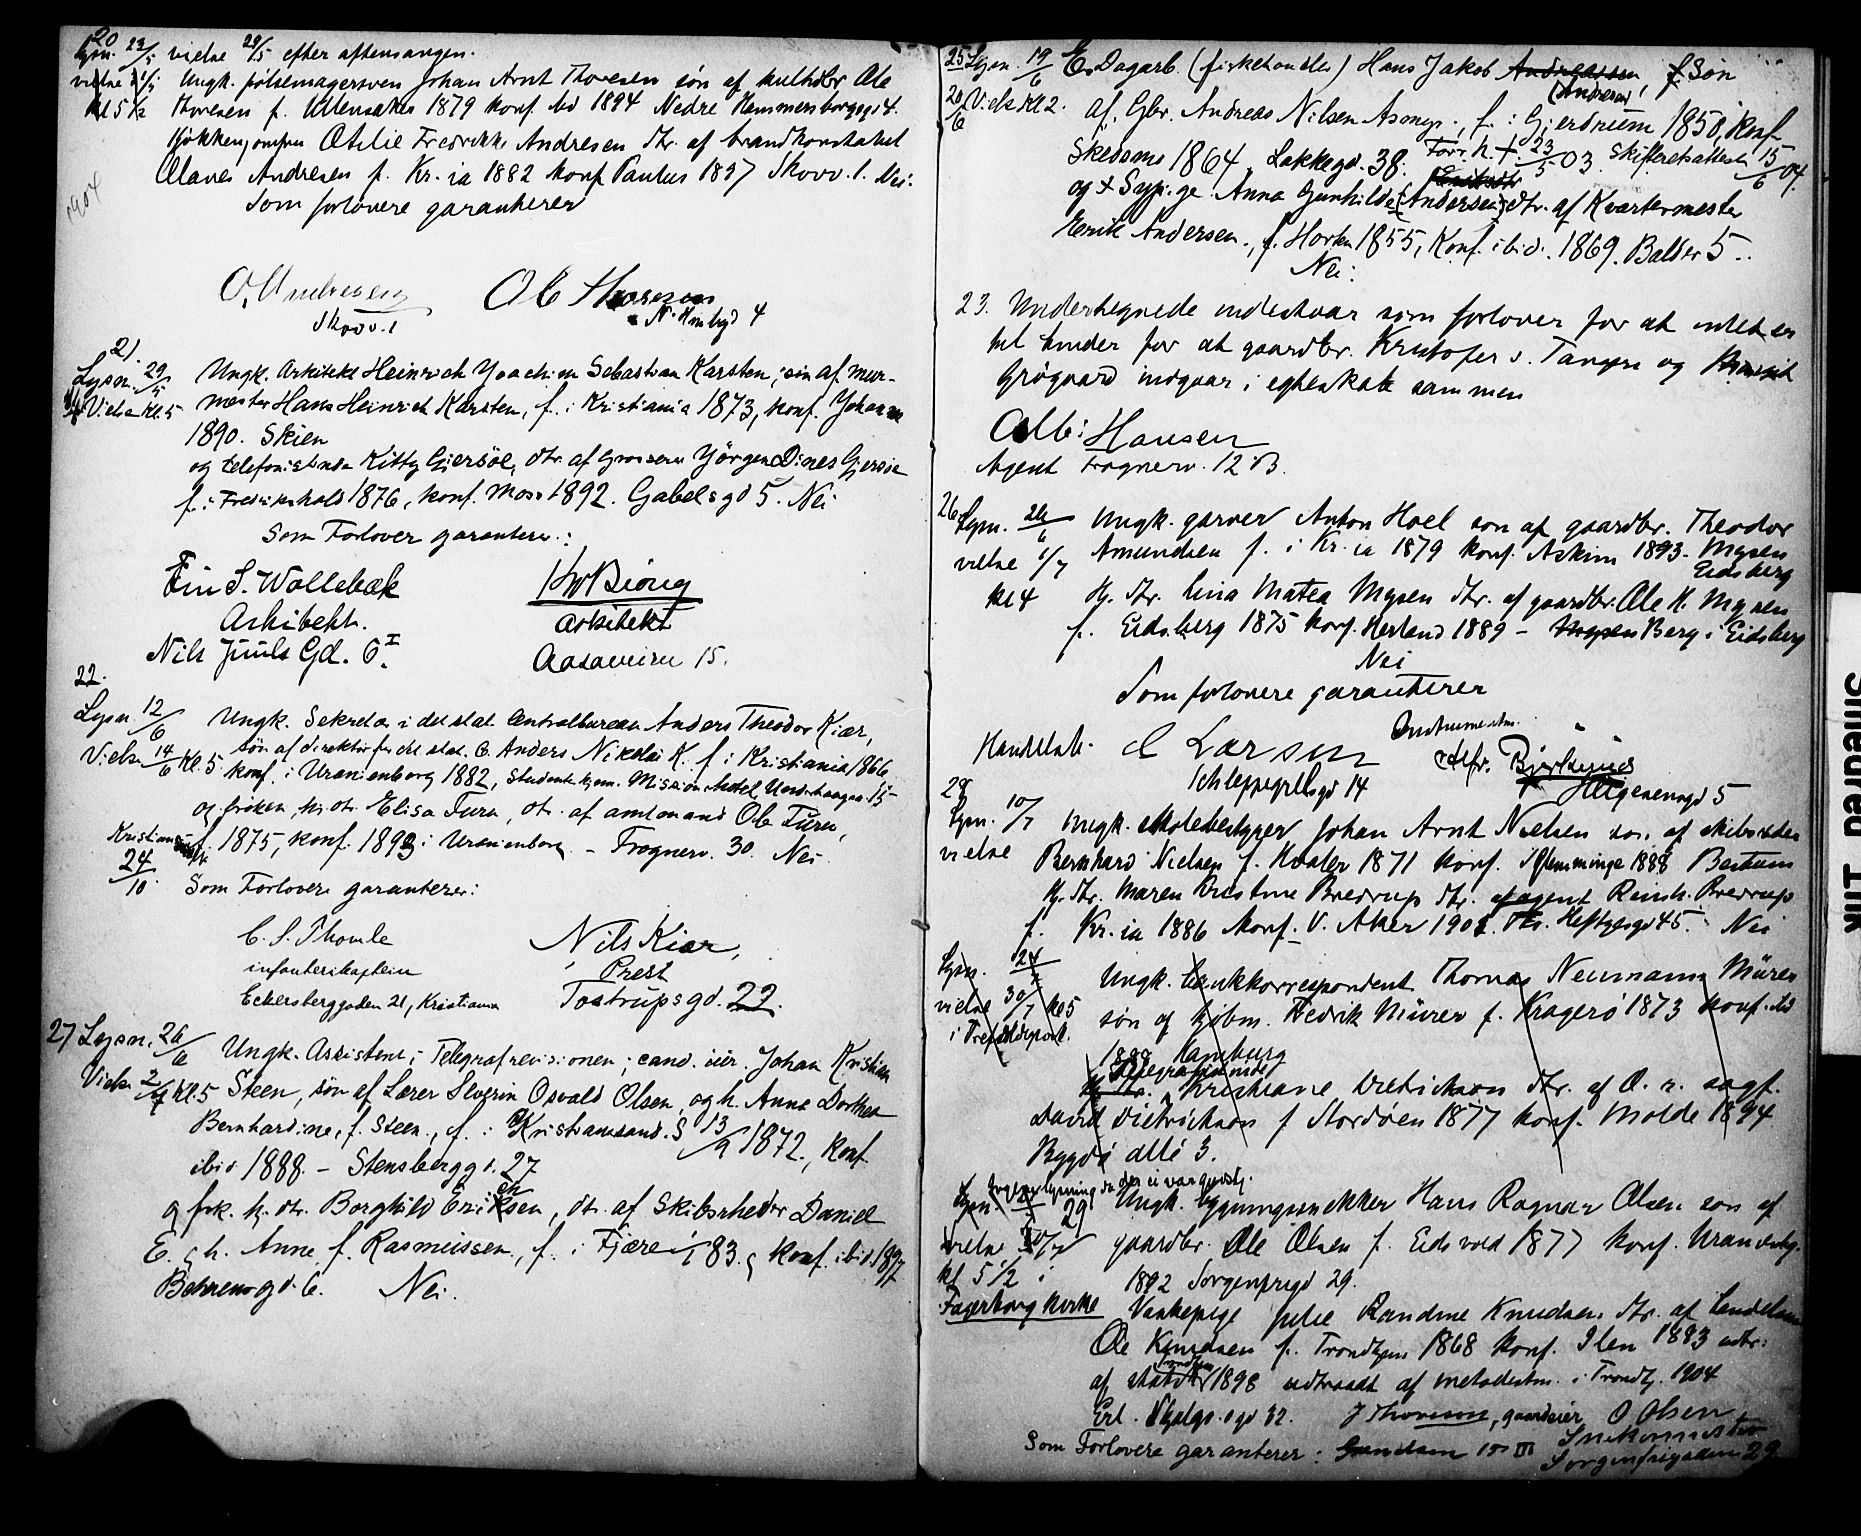 20
Lysn. 23/5 vielse 29/5 efter aftensangen.
Ungk. pølsemagersven Johan Arnt Thoresen søn af kulhdlr. Ole
Thoresen f. Ullensaker 1879 konf. ibd 1894 Nedre Hammersborggd 4.
Othilie Fredrikke Andresen dtr. af brandkonstabel
Olaves Andresen f. Kr.ia 1882 konf Paulus 1897 Skovv. 1. Nei.
Som forlovere garanterer
1904
O. Andresen
Skovv. 1
Ole Thoresen
4
21.
Lysn. 29/5 Ungk. Arkitekt Heinrich Joachim Sebastian Karsten, søn af mur-
Vielse Kl. 5 mester Hans Heinrich Karsten, f. i Kristiania 1873, konf. Johannes
1890. Skien
og telefonistinde Kitty Gjersøe, dtr. af Grosserer Jörgen Dines Gjersøe
f. i Fredrikshald 1876, konf. Moss 1892. Gabelsgd 5. Nei
Som Forlover garanterer:
S. Wollebæk
Arkitekt.
Nils Juuls Gd. 6 I
Biong
arkitekt
Aasaveien 15.
22.
Lysn. 12/6 Ungk. Sekretær i det stat. Centralbureau Anders Theodor Kiær,
Vielse 14/6 Kl. 5. søn af direktør for det stat. C. Anders Nikolai K. f. i Kristiania 1866
konf. i Uranienborg 1882, Student, Missionshotel, 15
og frøken, hj. dtr. Elisa Furu, dtr. af amtmand Ole Furu,
f. 1875, konf. 1893 i Uranienborg – Frognerv. 30. Nei
24/10 Som Forlovere garanterer:
C. S. Thomle
infanterikaptein
Eckersberggaden 21, Kristiania
Nils Kiær,
Prest
Tostrupsgd. 22.
27 Lysn. 26/6 Ungk. Assistent i Telegrafrevisionen, cand. jur. Johan Kristian
Vielse 2/7 Kl. 5 Steen, søn af Lærer Severin Osvald Olsen, og h. Anna Dorthea
Bernhardine, f. Steen., f. i Kristianssand. S 13/9 1872., konf.
ibid 1888. – Stensberggd. 27
og frk. hj. dtr. Borghild Eriksen, dtr. af Skibsrheder Daniel
E. og h. Anne f. Rasmussen, f. i Fjære 83. konf. ibid. 1897
Behrensgd. 6. Nei.
25 Lysn. 19/6 E. Dagarb. (fiskehandler) Hans Jakob Andreassen Søn
(Andersen)
20/6 Vielse Kl 2. af Gbr. Andreas Nilsen f. i Gjerdrum 1850, konf.
Skedsmo 1864, Lakkegd. 38. Forr. h. †. 23/5 03. Skifteretsattest 15/6 04.
og Syp.ge Anna Gunhilde (Andersen) dtr. af Kvartermester
Erik Andersen., f. Horten 1855, Konf. ibid. 1869. Balder 5.
Nei.
23. Undertegnede indestaar som forlover for at intet er
til hinder for at gaardbr. Kristofer s. Tangen og
Grögaard indgaar i egteskab sammen
Alb: Hansen
Agent Frognerv. 12 B.
26 Lysn. 26/6 Ungk. garver Anton Hoel søn af gaardbr. Theodor
vielse 1/7 Amundsen f. i Kr.ia 1879 konf. Askim 1893. Mysen
Eidsberg
kl 4 Hj. dtr. Lina Matea Mysen dtr. af gaardbr. Ole H. Mysen
f. Eidsberg 1875 konf. Herland 1889 – Mysen Berg i Eidsberg
Nei
Som forlovere garanterer
C Larsen
Schleppegrellsgd 14
Instrumentm.
5
28
Lysn. 10/7 Ungk. skolebestyrer Johan Arnt Nielsen søn. af skibsreder
vielse Bernhard Nielsen f. Hvaler 1871 konf. i Glemminge 1888 Bestum
Hj. dtr. Maren Kristine Bredrup dtr. af agent Reinh. Bredrup
f. Kr.ia 1886 konf. V. Aker 1901. Ths. Heftyesgd 45. Nei
Lysn. 24/7 Ungk. bankkorrespondent Thomas Neumann Mürer
vielse 30/7 kl 5 søn af kjøbm. Fredrik Mürer f. Kragerø 1873 konf. ibd
1888 Hamburg
Telegrafistinde
Hj. dtr. Kristiane Dietrichson dtr. af O. r. sagf.
David Dietrichson f. Stordøen 1877 konf. Molde 1894
Bygdø allé 3.
29
Ungk. bygningssnekker Hans Ragnar Olsen søn af
vielse 30/7 gaardbr. Ole Olsen f. Eidsvold 1877 konf. Uranienbg.
kl 5 1/2 i 1892 Sorgenfrigd 29.
Fagerborg kirke Vaskepige Julie Randine Knudsen dtr. af
Ole Knudsen f. Trondhjem 1868 konf. Ilen 1883 udtr.
af statsk. 1898 udtraadt af metodistm. i Trondhj. 1904
J Thoresen, gaardeier O Olsen
Som Forlovere garanterer: Snekermester
Sorgenfrigaden 29